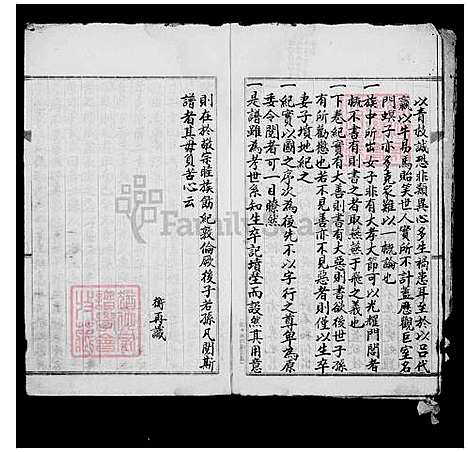 以青枝誠恐非類異心多生禍患耳至於以呂代
嬴以牛易馬貽笑世人實所不計蓋應觀巨室名
門螟子亦多克家難以一概論也
一族中所出女子非有大孝大節可以光耀門閭者
概不書有則書之者取無于飛之義也
一下卷紀實有大善則書有大惡則書欲後世子孫
有所勸懲也若不見善亦不見惡者則僅以生卒
妻子墳地紀之
一紀實以圖之次序為後先不以字行之尊卑為原
委令閱者可一目瞭然
一是譜雖為考世系知生卒記墳塋而設然其用意
則在於敬宗睦族飭紀敦倫欲後子若孫凡閱斯
譜者其毋負苦心云
衛再識
FamilySearch